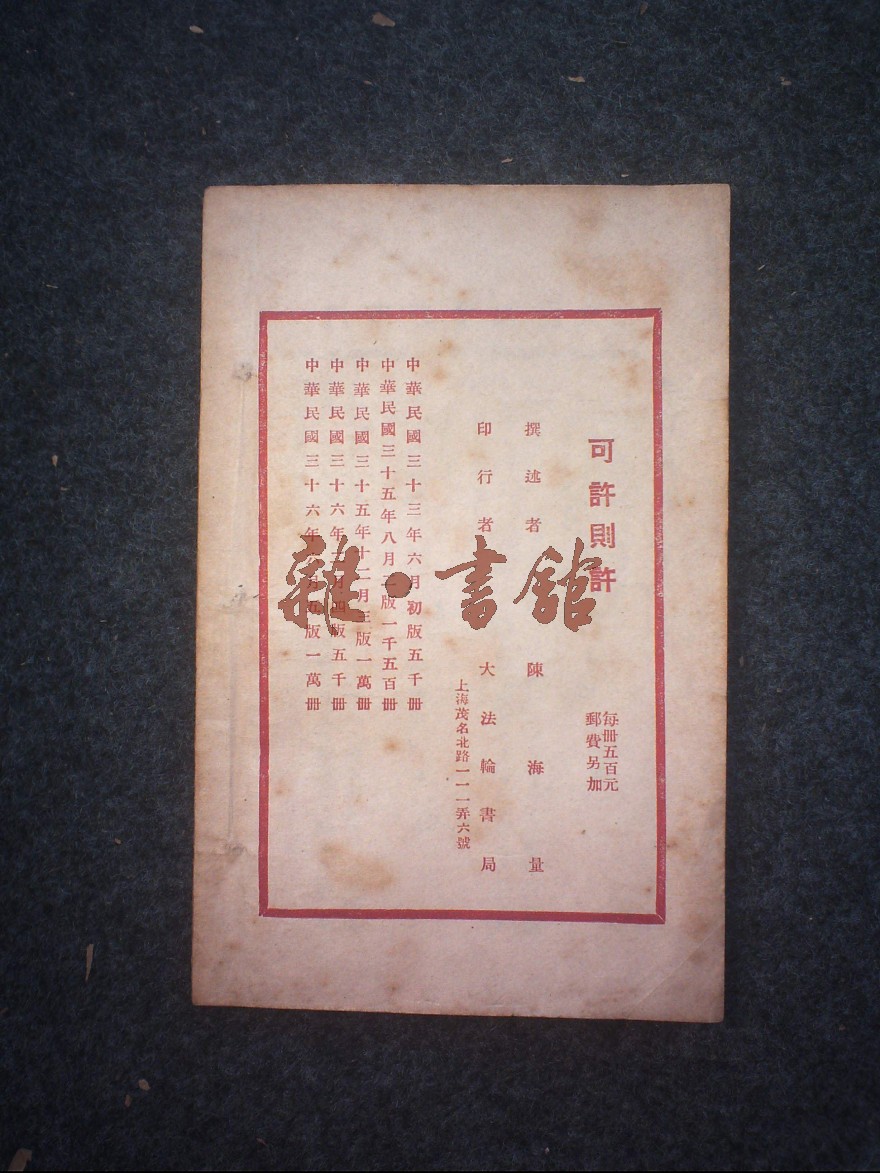 可許則許
每冊五百元
郵費另加
撰述者 陳海量
印行者 大法輪書局
上海茂名北路一一一弄六號
中華民國三十三年六月初版五千冊
中華民國三十五年八月二版一千五百冊
中華民國三十五年十二月三版一萬冊
中華民國三十六年 月四版五千冊
中華民國三十六年 月五版一萬冊
雜·書館